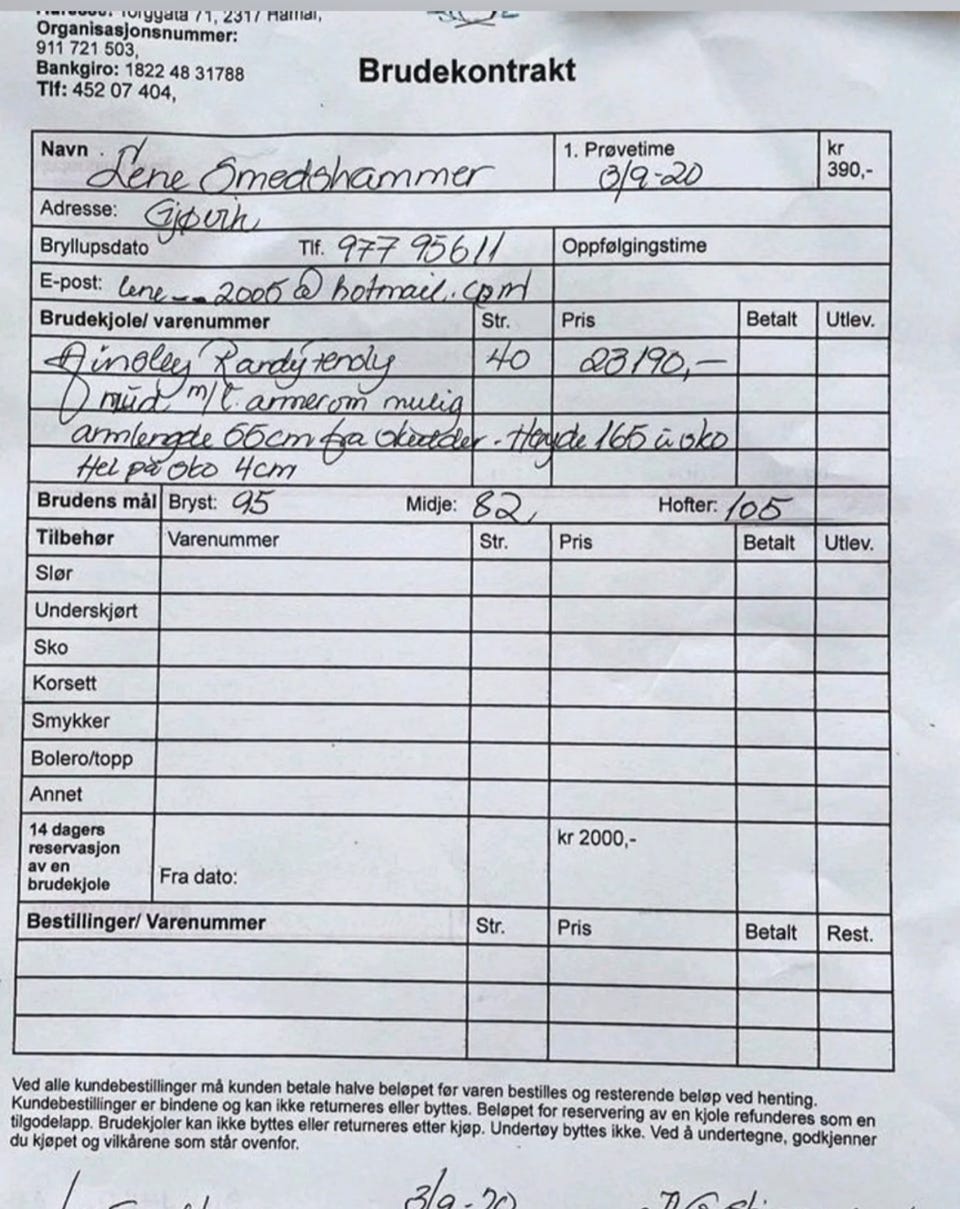 Adresse: Torggata 71, 2317 Hamar,
Organisasjonsnummer:
911 721 503,
Bankgiro: 1822 48 31788
Tlf: 452 07 404,
Brudekontrakt
Navn Lene Smedshammer 1. Prøvetime 3/9-20 kr 390,-
Adresse: Gjøvik
Bryllupsdato Tlf. 977 95611 Oppfølgingstime
E-post: lene--2005@hotmail.com
Brudekjole/ varenummer Str. Pris Betalt Utlev.
Ainsley 40 23190,-
m/t. armer om mulig
armlengde 55cm fra - Høyde 165 u sko
Hel på sko 4cm
Brudens mål Bryst: 95 Midje: 82, Hofter: 105
Tilbehør Varenummer Str. Pris Betalt Utlev.
Slør
Underskjørt
Sko
Korsett
Smykker
Bolero/topp
Annet
14 dagers reservasjon av en brudekjole Fra dato: kr 2000,-
Bestillinger/ Varenummer Str. Pris Betalt Rest.
Ved alle kundebestillinger må kunden betale halve beløpet før varen bestilles og resterende beløp ved henting.
Kundebestillinger er bindene og kan ikke returneres eller byttes. Beløpet for reservering av en kjole refunderes som en
tilgodelapp. Brudekjoler kan ikke byttes eller returneres etter kjøp. Undertøy byttes ikke. Ved å undertegne, godkjenner
du kjøpet og vilkårene som står ovenfor.
3/9-20